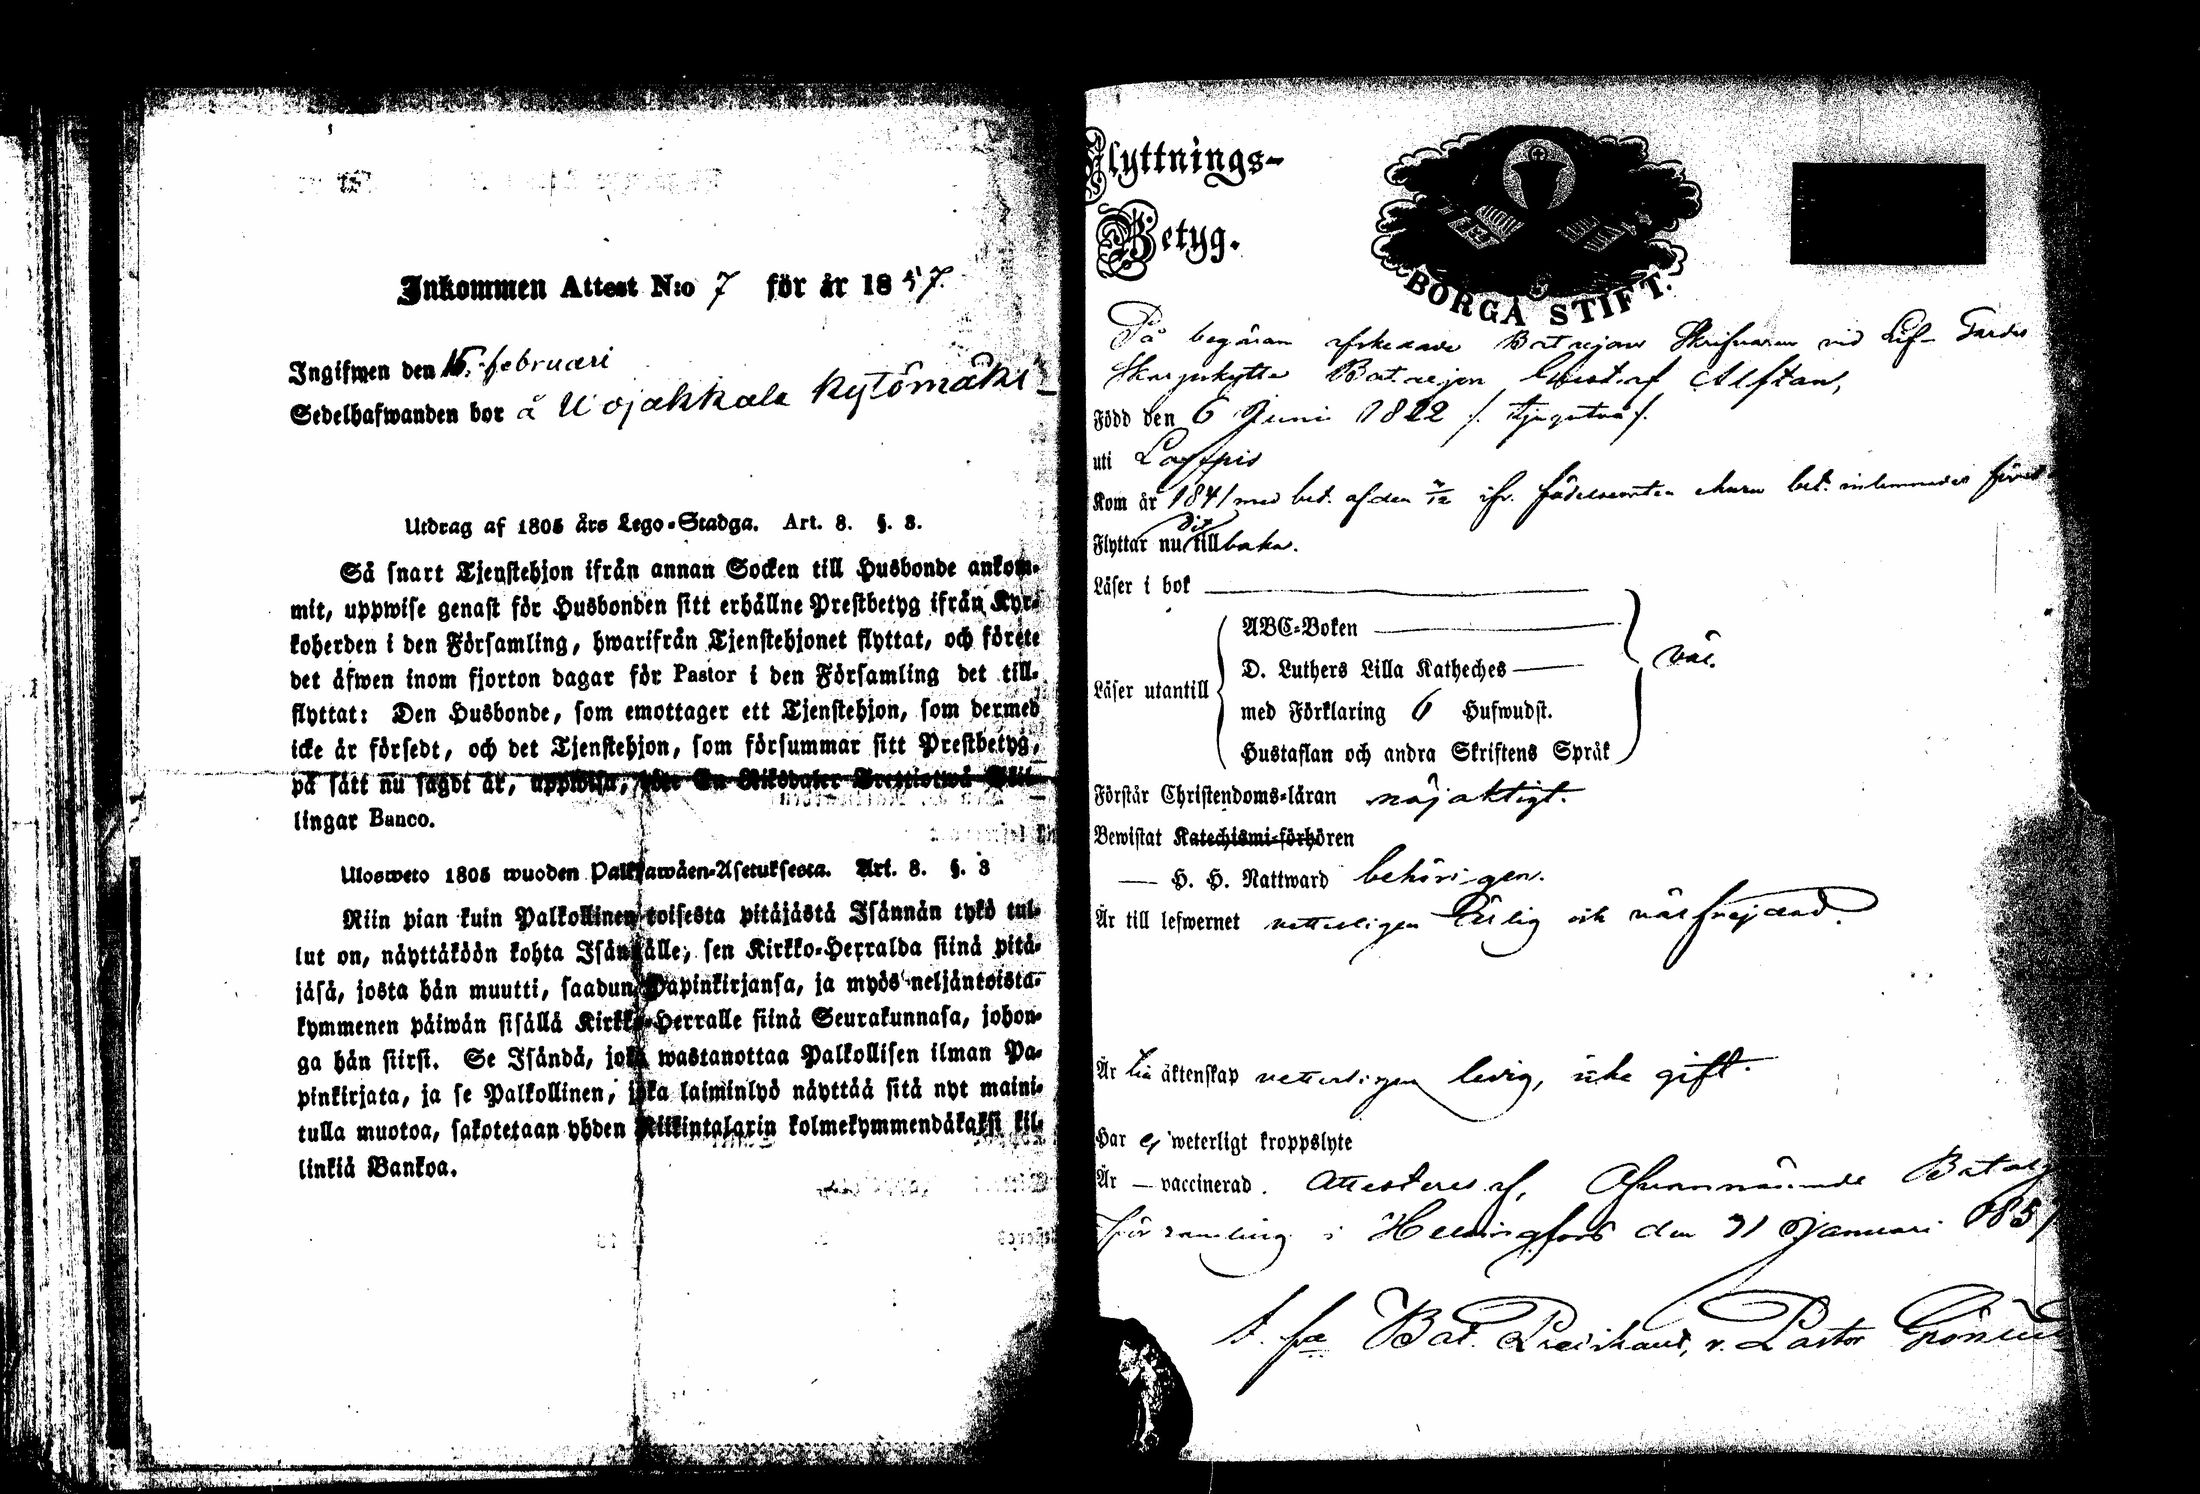 Inkommen Attest N:o 7 för år 1857.
Ingifwen den 15. februari
Sedelhafwanden bor å Uojakkala Kytömäki
Utdrag af 1805 års Lego-Stadga. Art. 8. §. 3.
Så snart Tjenstehjon ifrån annan Socken till Husbonde ankom-
mit, uppwise genast för Husbonden sitt erhållne Prestbetyg ifrån Kyr-
koherden i den Församling, hwarifrån Tjenstehjonet flyttat, och förete
det äfwen inom fjorton dagar för Pastor i den Församling det till-
flyttat: Den Husbonde, som emottager ett Tjenstehjon, som dermed
icke är försedt, och det Tjenstehjon, som försummar sitt Prestbetyg,
på sätt nu sagdt är, uppwisa, böte En Riksdaler Trettiotwå Skil-
lingar Banco.
Ulosweto 1805 wuoden Palkkawäen-Asetuksesta. Art. 8. §. 3
Niin pian kuin Palkollinen toisesta pitäjästä Isännän tykö tul-
lut on, näyttäköön kohta Isännälle, sen Kirkko-Herralda siinä pitä-
jäsä, josta hän muutti, saadun Papinkirjansa, ja myös neljäntoista-
kymmenen päiwän sisällä Kirkko-Herralle siinä Seurakunnasa, johon-
ga hän siirsi. Se Isändä, joka wastanottaa Palkollisen ilman Pa-
pinkirjata, ja se Palkollinen, joka laiminlyö näyttää sitä nyt maini-
tulla muotoa, sakotetaan yhden Riikintalarin kolmekymmendäkaksi kil-
linkiä Bankoa.
Flyttnings-
Betyg.
BORGÅ STIFT.
På begäran afskedade Bataljons Skrifvaren vid Lif-Gardes
Skarpskytte Bataljon Gustaf Alftan,
Född den 6 Juni 1822 /. tjugutvå /.
uti Lampis
Kom år 1841 med bet. af den ifr. födelseorten hvars bet. inlemnades
Flyttar nu dit tillbaka.
Läser i bok
ABC-Boken
D. Luthers Lilla Katheches
väl.
Läser utantill
med Förklaring 6 Hufwudst.
Hustaflan och andra Skriftens Språk
Förstår Christendoms-läran nöjaktigt.
Bewistat Katechismi-förhören
— H. H. Nattward behörigen.
Är till lefwernet vetterligen ärlig och välfrejdad.
Är till äktenskap vetterligen ledig, icke gift.
Har ej weterligt kroppslyte
Är — vaccinerad. Attesteras af, Ofvannämnde Batalj
församling i Helsingfors den 31 Januari 1857
t. f. Bat. Predikant, v. Pastor